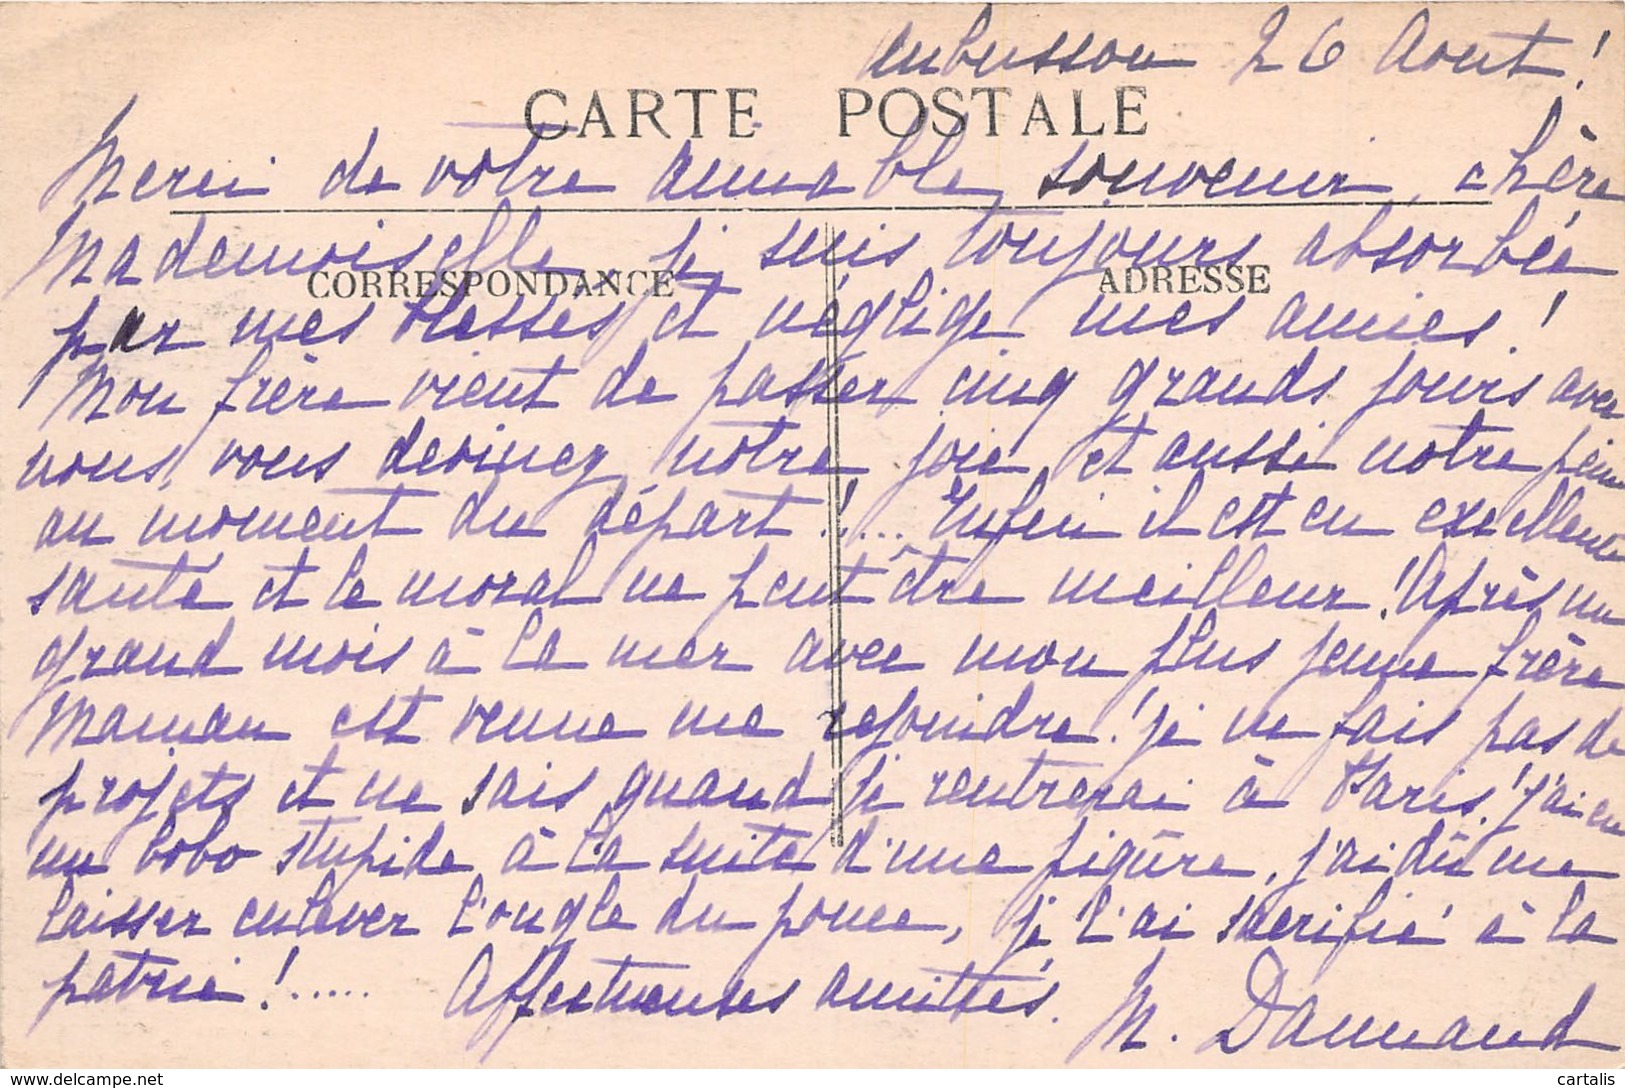 Aubusson 26 Août!
CARTE POSTALE
Merci de votre aimable souvenir, chère
Mademoiselle, je suis toujours absorbée
CORRESPONDANCE ADRESSE
par mes blessés, et néglige mes amies!
Mon frère vient de passer cinq grands jours avec
nous, vous devinez notre joie, et aussi notre peine
au moment du départ!.... Enfin il est en excellente
santé et le moral ne peut être meilleur! Après un
grand mois à la mer avec mon plus jeune frère
Maman est venue me rejoindre! je ne fais pas de
projets et ne sais quand je rentrerai à Paris! j'ai eu
un bobo stupide à la suite d'une piqûre, j'ai dû me
laisser enlever l'ongle du pouce, je l'ai sacrifié à la
patrie!...... Affectueuses amitiés.
M. Damnand
cartalis